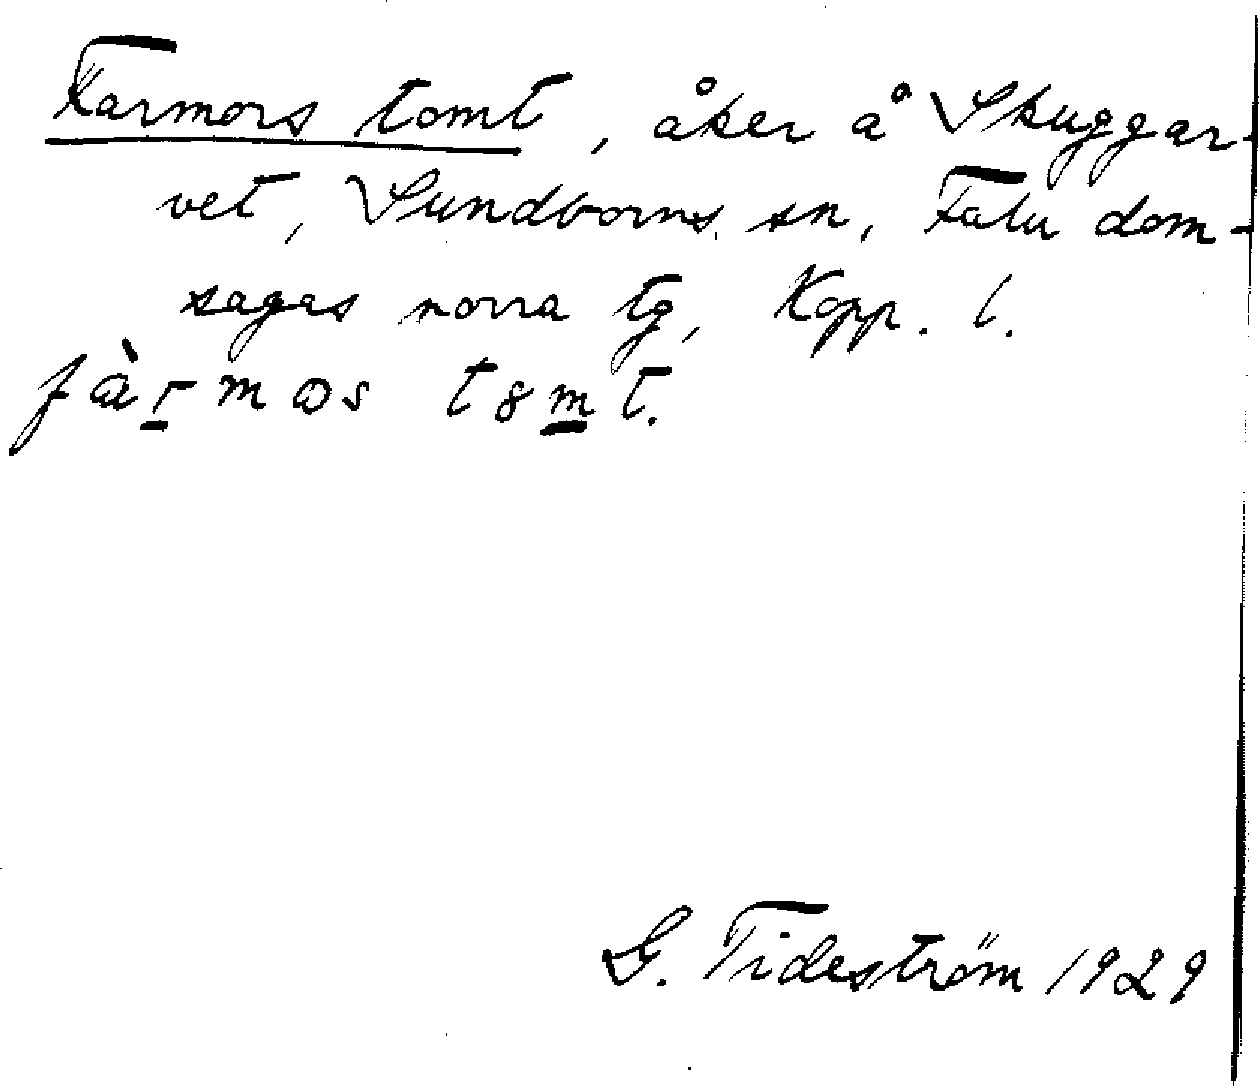 Farmors tomt, åker å Skuggar-
vet, Sundborns sn, Falu dom-
sagas norra tg, Kopp. l.
G. Tideström 1929